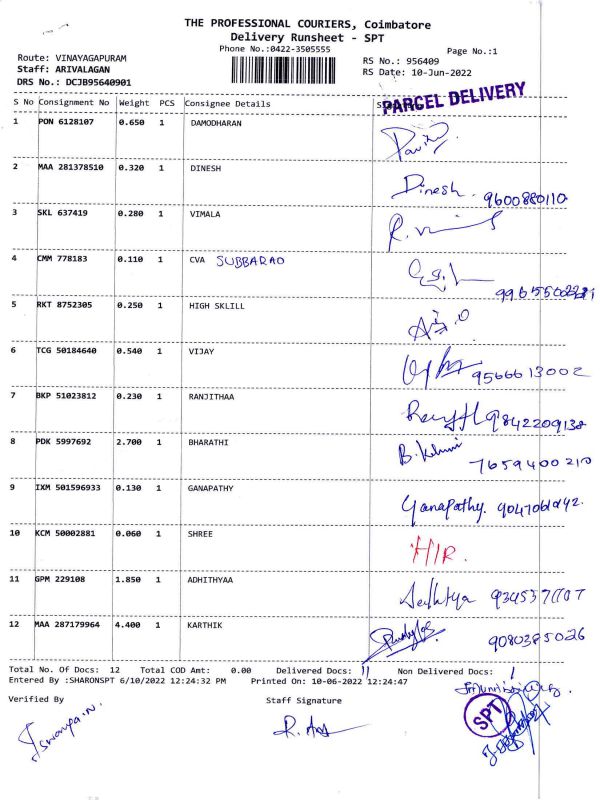 THE PROFESSIONAL COURIERS, Coimbatore
Delivery Runsheet - SPT
Phone No.:0422-3505555
Page No.:1
Route: VINAYAGAPURAM
Staff: ARIVALAGAN
DRS No.: DCJB95640901
RS No.: 956409
RS Date: 10-Jun-2022
PARCEL DELIVERY
S No Consignment No Weight PCS Consignee Details
1 PON 6128107 0.650 1 DAMODHARAN
2 MAA 281378510 0.320 1 DINESH Dinesh 9600880110
3 SKL 637419 0.280 1 VIMALA
4 CMM 778183 0.110 1 CVA SUBBARAO
5 RKT 8752305 0.250 1 HIGH SKLILL
6 TCG 50184640 0.540 1 VIJAY 9566613002
7 BKP 51023812 0.230 1 RANJITHAA 9842209138
8 PDK 5997692 2.700 1 BHARATHI 7659400210
9 IXM 501596933 0.130 1 GANAPATHY Ganapathy.
10 KCM 50002881 0.060 1 SHREE H/R.
11 GPM 229108 1.850 1 ADHITHYAA
12 MAA 287179964 4.400 1 KARTHIK 9080385026
Total No. Of Docs: 12 Total COD Amt: 0.00 Delivered Docs: 11 Non Delivered Docs: 1
Entered By :SHARONSPT 6/10/2022 12:24:32 PM Printed On: 10-06-2022 12:24:47
Verified By
Staff Signature
SPT